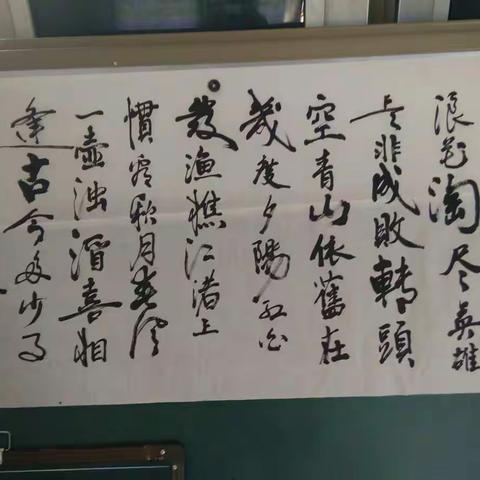 浪花淘尽英雄
是非成敗轉頭
空青山依舊在
幾度夕陽紅白
發渔樵江渚上
慣看秋月春风
一壶浊酒喜相
逢古今多少事